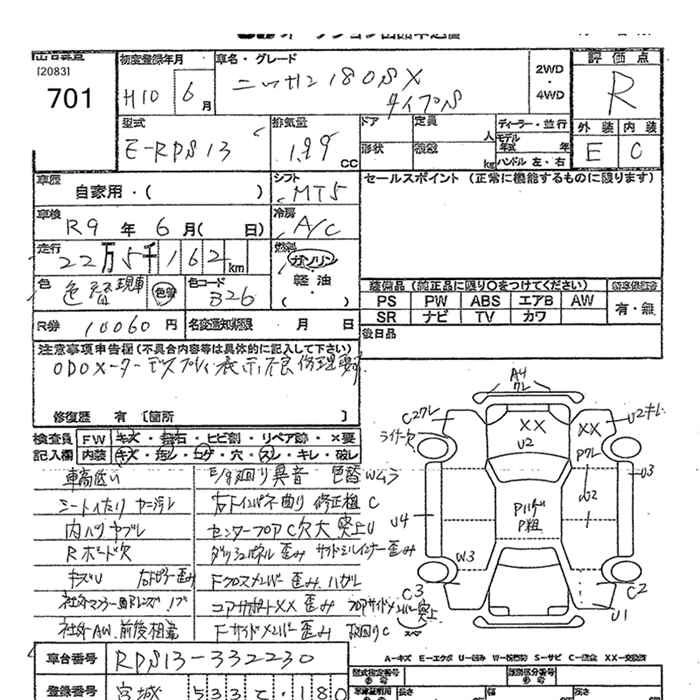 [2083]
701
初度登録年月
H10 6 月
車名・グレード
ニッサン 180SX
タイプS
2WD
・
4WD
評価点
R
外装 内装
E C
型式
E-RPS13
排気量
1.99 CC
ドア
形状
定員
人
積載
kg
ディーラー・並行
モデル年式 年
ハンドル 左・右
車歴
自家用・( )
シフト
MT5
セールスポイント (正常に機能するものに限ります)
車検
R9 年 6 月( 日)
冷房
A/C
走行
22万5千162 km
燃料
ガソリン
軽油
・
( )
色
色替 現車 色替
色コード
326
装備品 (純正品に限り○をつけてください)
PS PW ABS エアB AW
SR ナビ TV カワ
有・無
R券 10060 円
名変通知期限 月 日
後日品
注意事項申告欄 (不具合内容等は具体的に記入して下さい)
ODOメーターディスプレイ表示不良 修理要
修復歴 有 [箇所 ]
検査員 FW キズ・飛石・ヒビ割・リペア跡・×要
記入欄 内装 キズ・汚レ・コゲ・穴・スレ・キレ・破レ
車高低い
シートイタリ ヤニ汚レ
内ハリヤブレ
Rボード欠
キズU 右Rピラー歪み
色替 Wムラ
右Fインパネ曲り 修正粗 C
センターフロア C 欠大 突上U
ダッシュパネル歪み サイドシルインナー歪み
Fクロスメンバー歪み ハガレ
コアサポートXX 歪み
フロアサイドメンバー突上
社外AW 前後相違
Fサイドメンバー歪み
A4
ワレ
C2ワレ
ライナー欠
XX
U2
XX
U2キレ
Pワレ
U3
W2
U4
Pハゲ
P粗
W3
C3
C2
U1
A-キズ E-エクボ U-凹み W-補修跡 S-サビ C-腐食 XX-交換済
車台番号 RPS13-332230
登録番号 宮城 533 て・180
型式指定番号
類別区分番号
長さ 幅 高さ